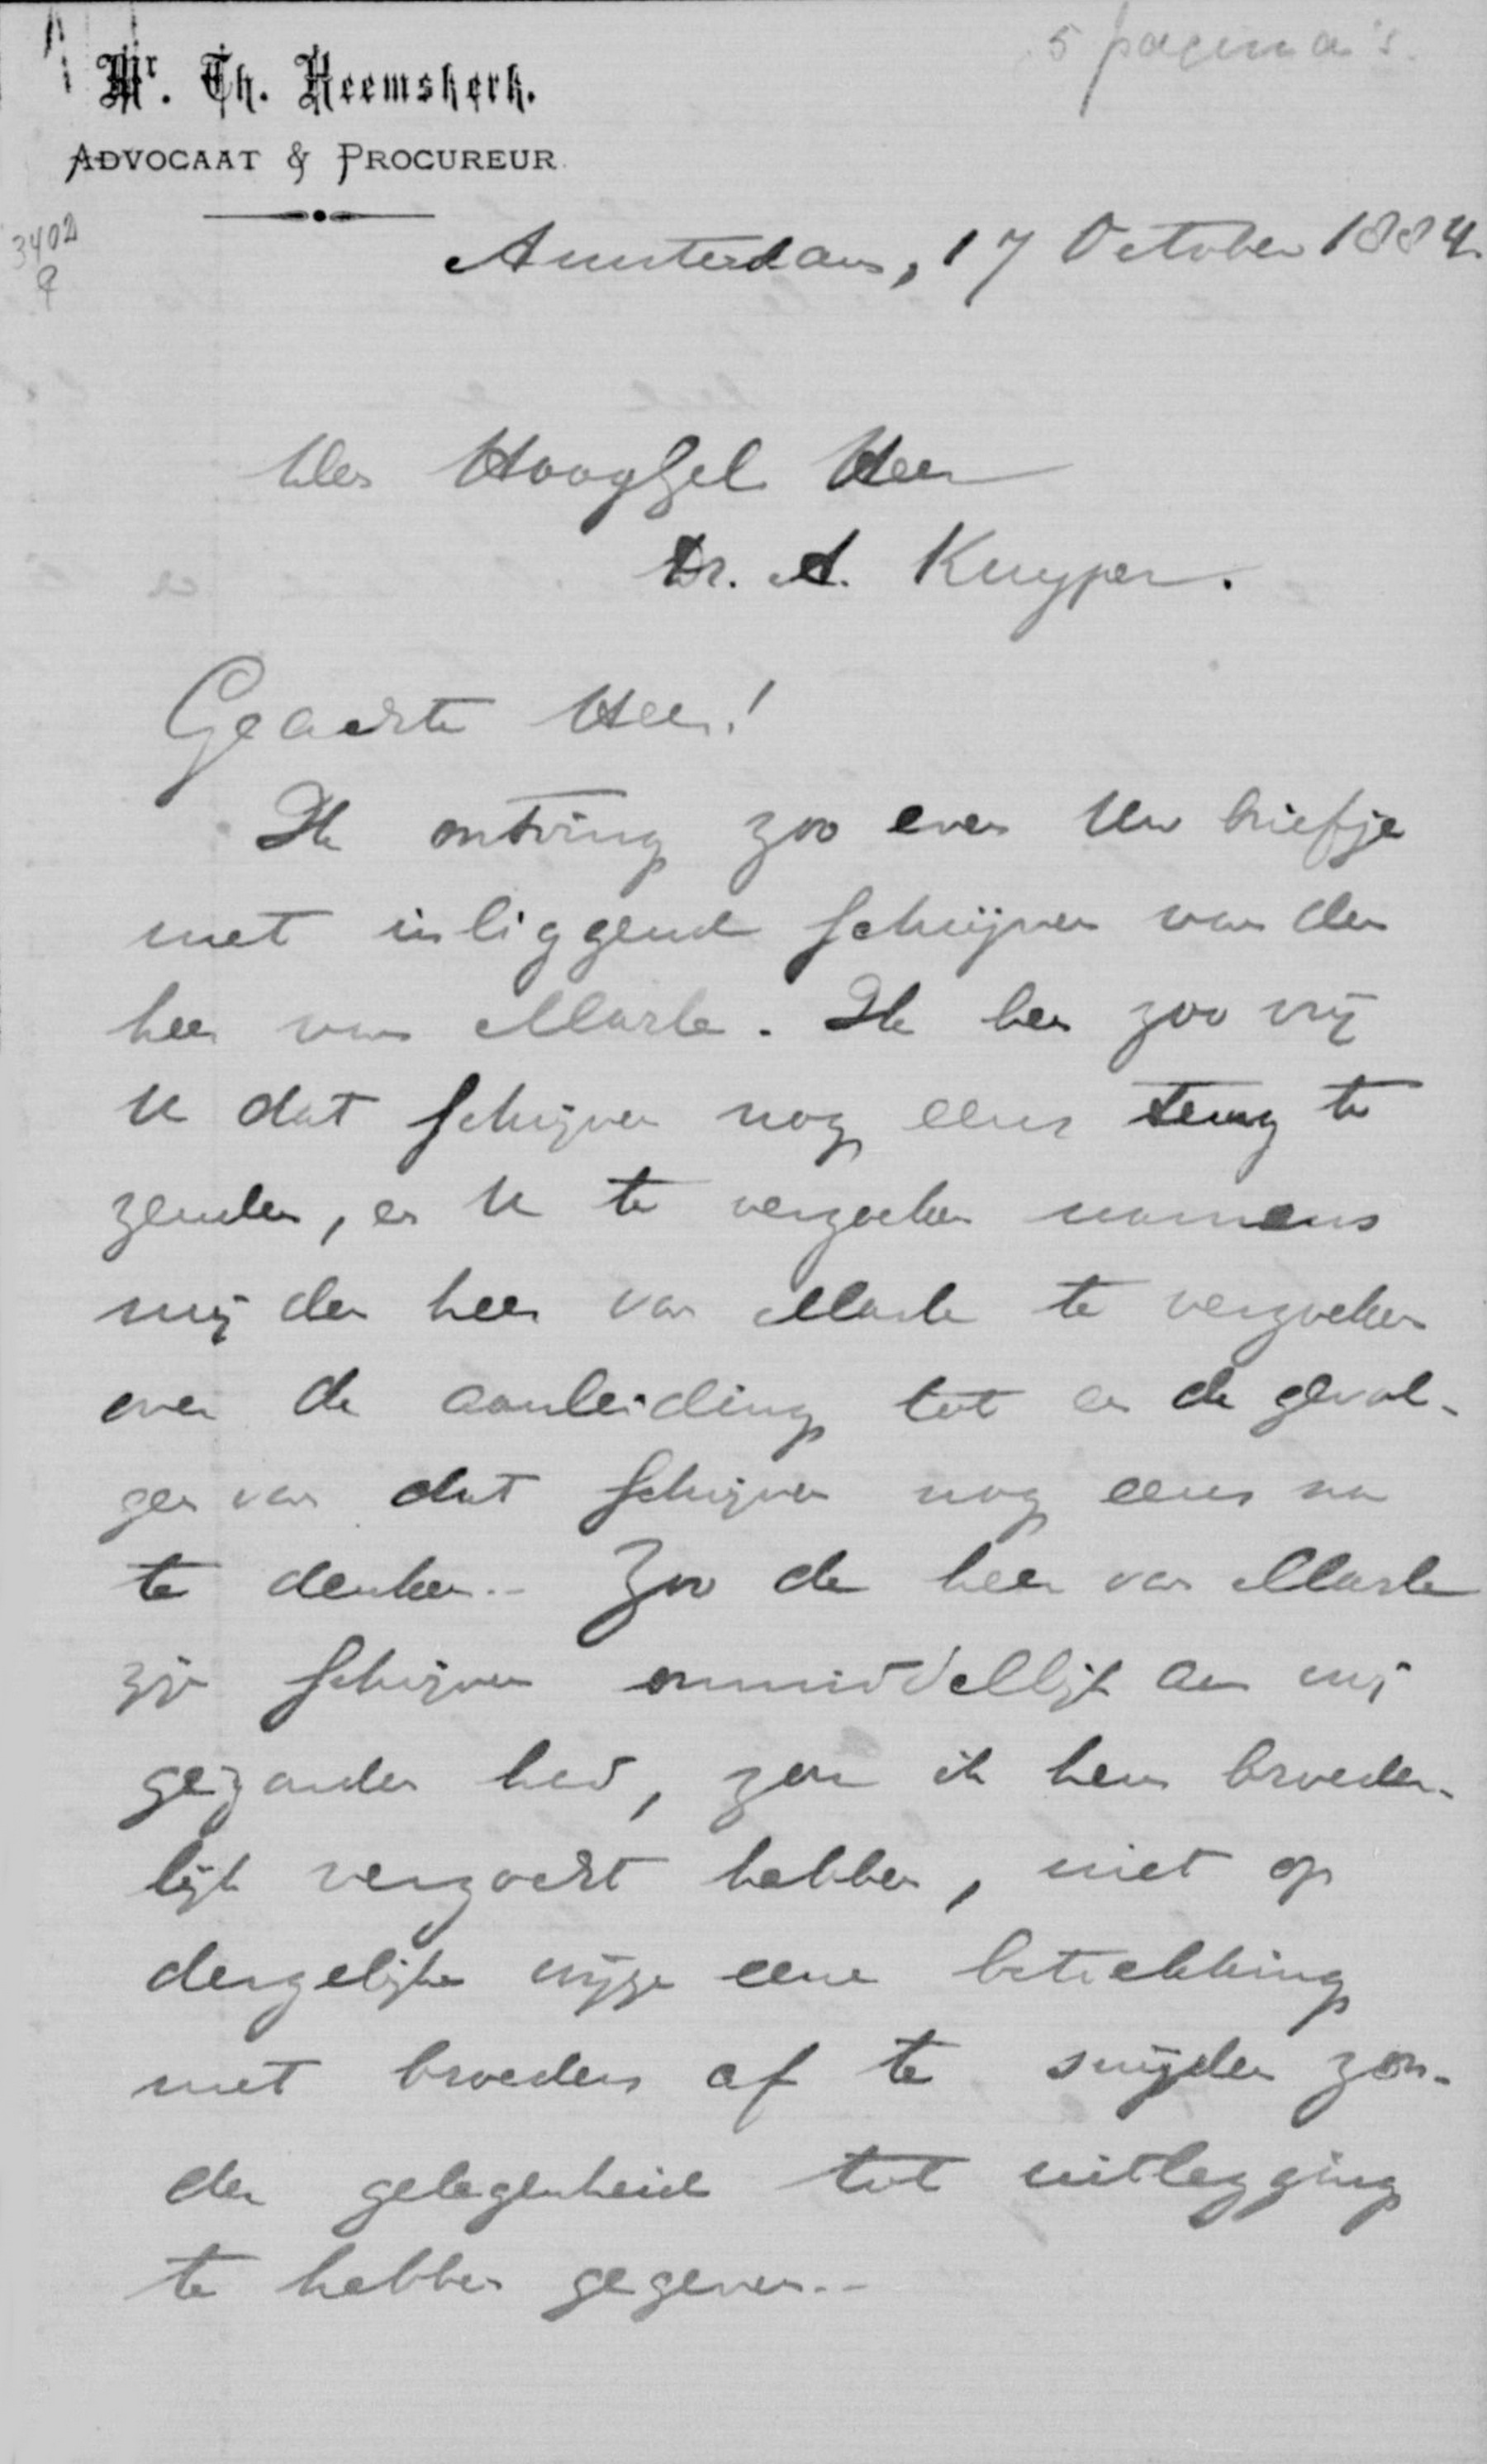 5 pagina's.
Mr. Th. Heemskerk.
ADVOCAAT & PROCUREUR.
3402
Amsterdam, 17 October 1884.
Den HoogGel Heer
Dr. A. Kuyper.
Geachte Heer!
Ik ontving zoo even Uw briefje
met inliggend schrijven van den
heer van Marle. Ik ben zoo vrij
U dat schrijven nog eens terug te
zenden, en U te verzoeken namens
mij den heer van Marle te verzoeken
over de aanleiding tot en de gevol-
gen van dat schrijven nog eens na
te denken.- Zoo de heer van Marle
zijn schrijven onmiddellijk aan mij
gezonden had, zou ik hem broeder-
lijk verzocht hebben, niet op
dergelijke wijze eene betrekking
met broeders af te snijden zon-
der gelegenheid tot uitlegging
te hebben gegeven.-